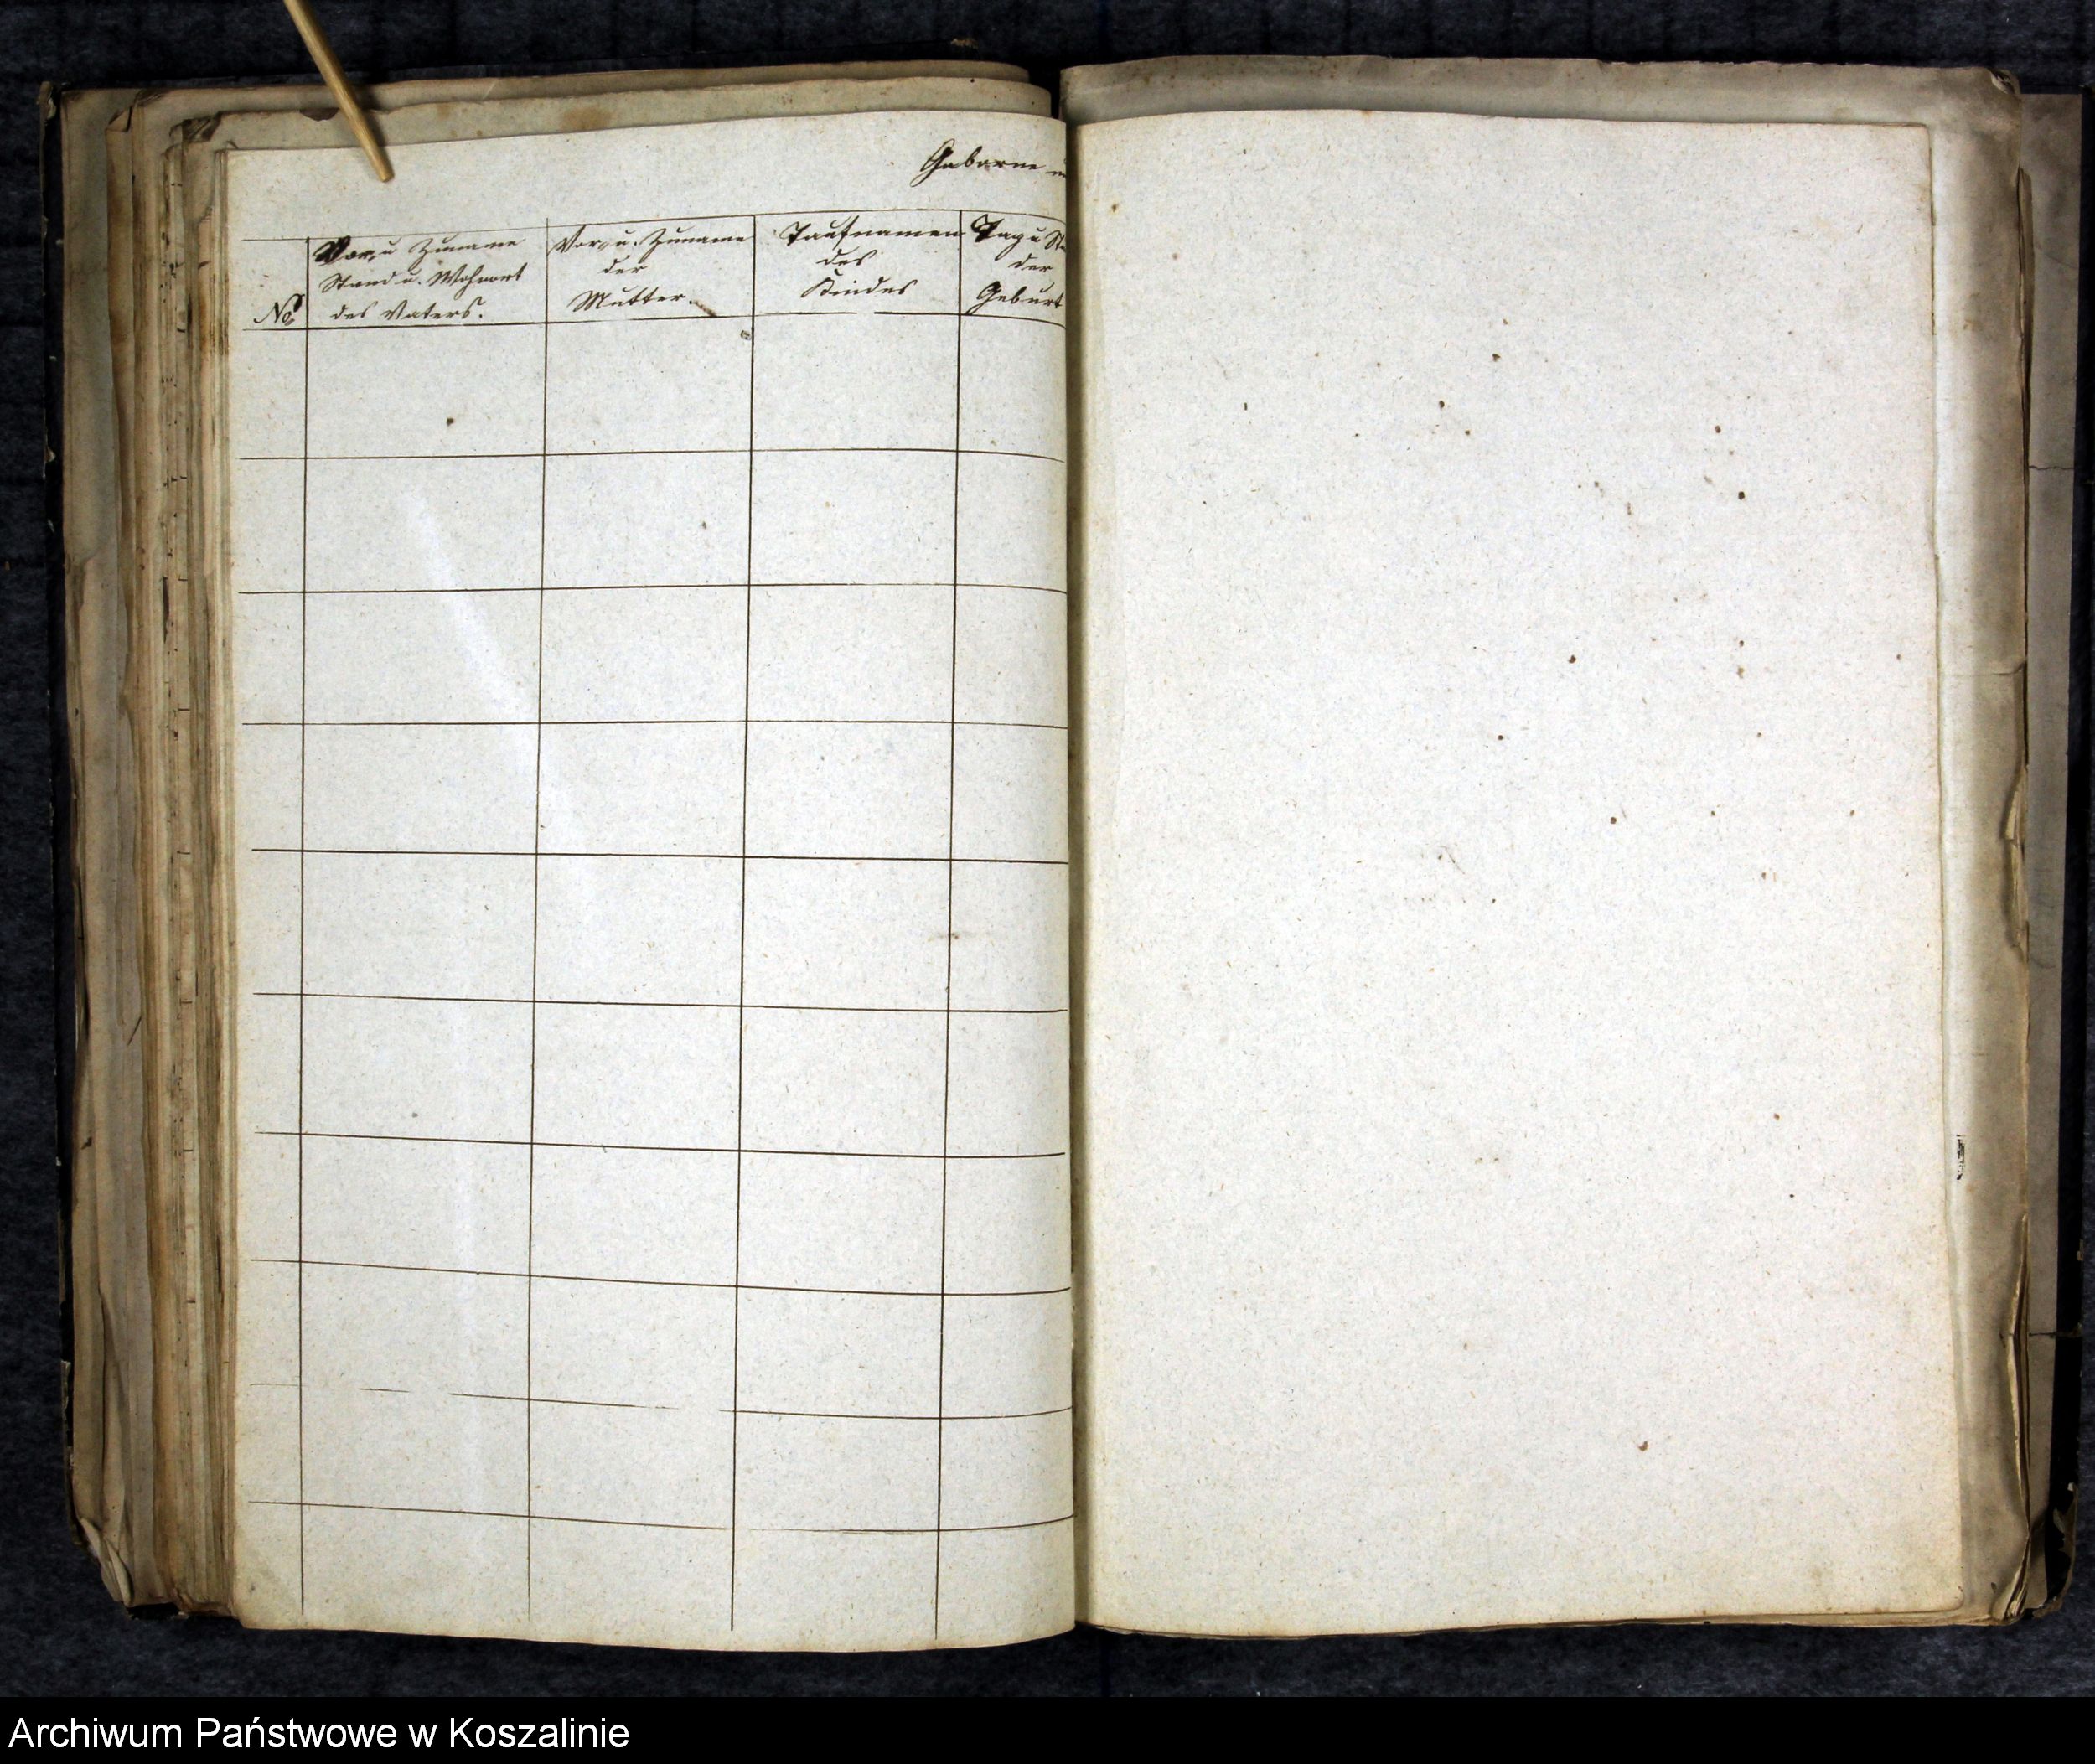 Geborne
No
Vor u Zuname
Stand u. Wohnort
des Vaters.
Vor u. Zuname
der
Mutter.
Taufnamen
des
Kindes
Tag u St
der
Geburt
Archiwum Państwowe w Koszalinie